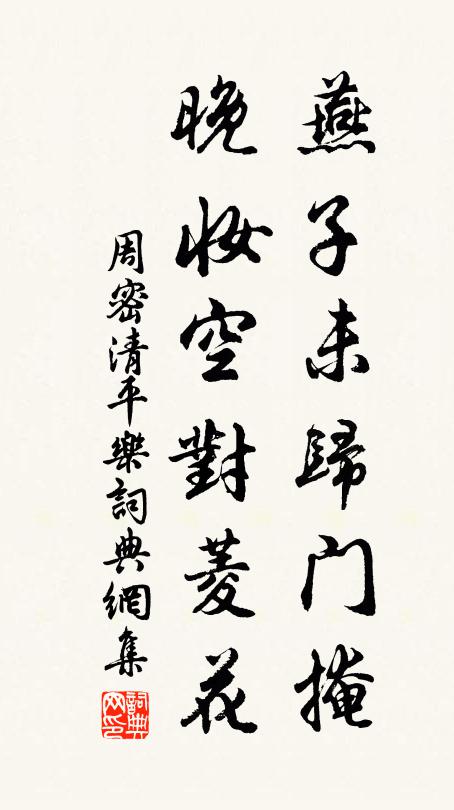 燕子未歸门掩
晚妆空對菱花
周密清平樂詞典網集
詞典网印